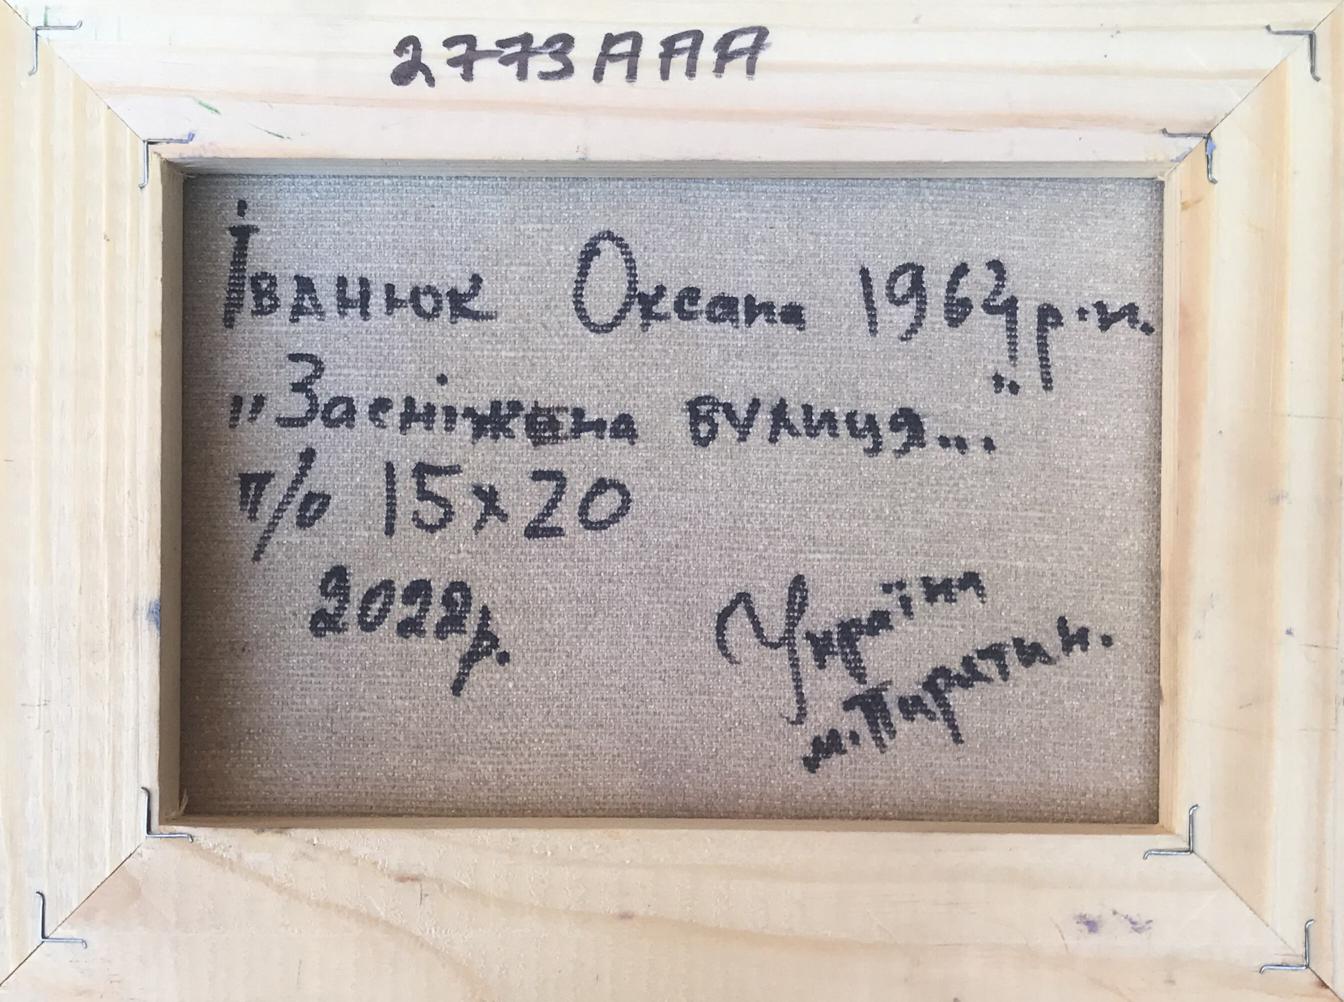 2773AAA
Іванюк Оксана 1964 р.н.
„Засніжена вулиця..."
п/о 15x20
2022р.
Україна
м.Пирятин.